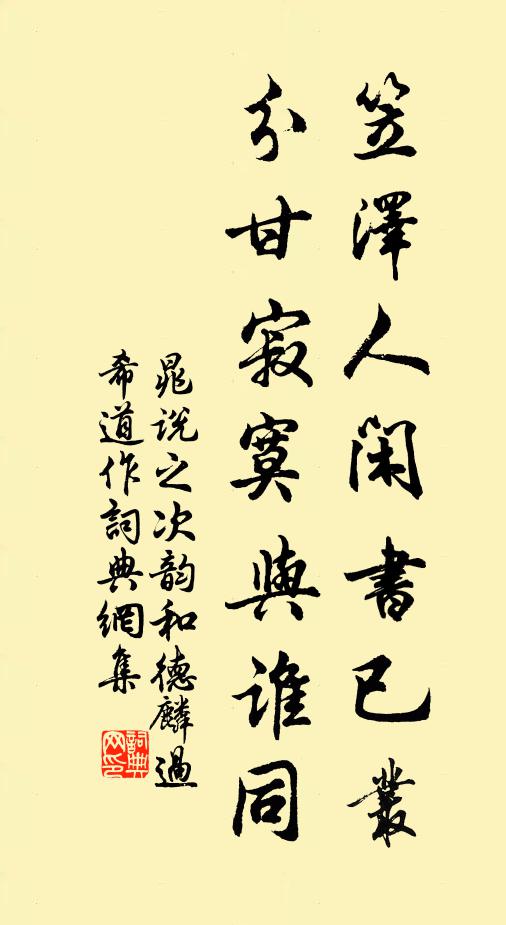 笠澤人閑書已叢
分甘寂寞與誰同
晁說之次韵和德麟過
希道作詞典網集
詞典網印